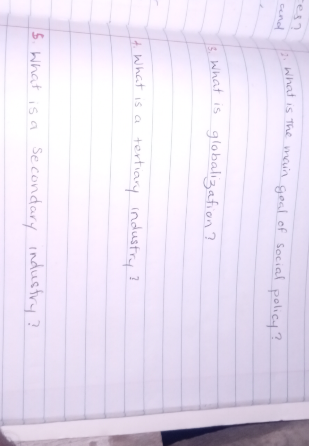 es?
and
2. What is The main goal of social policy?
3. What is globalization?
4. What is a tertiary industry?
5. What is a secondary industry?